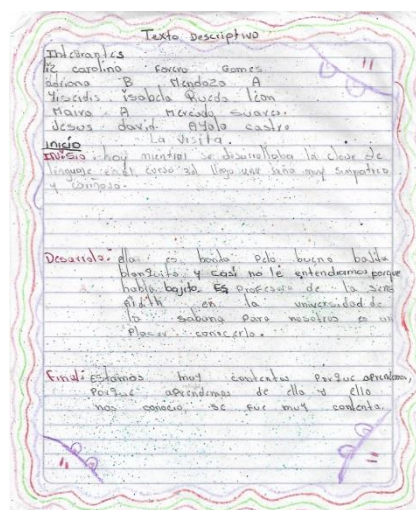 Texto Descriptivo
Integrantes
liz carolina Forero Gomes
adriana B Mendoza A
Yiseidis isabela Rueda león
Maira A Mercado Suarez.
Jesus david Ayola castro
La Visita.
inicio
hoy mientras se desarrollaba la clase de
linguaje en el curso llego una seño muy simpatica
y cariñosa.
Desarrolo: ella es bonita Pelo bueno bajita
blanquita y casi no le entendiamos porque
habla bajito. Es Profesora de la seño
en la universidad de
la sabana Para nosotros es un
Placer conocerla.
Final: Estamos muy contentos Porque aprendemos
Porque aprendemos de ella y ella
nos conocio, se fue muy contenta.